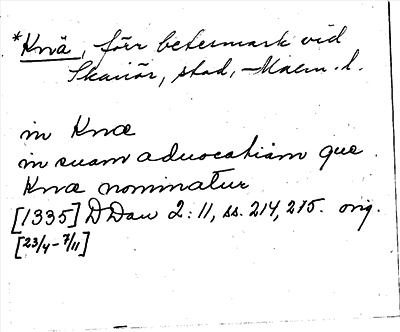 *Knä, förr betesmark vid
Skanör, stad, Malm. l.
in Knæ
in suam aduocatiam que
Knæ nominatur
[1335] DDan 2:11, ss. 214, 215. orig.
[23/4-7/11]